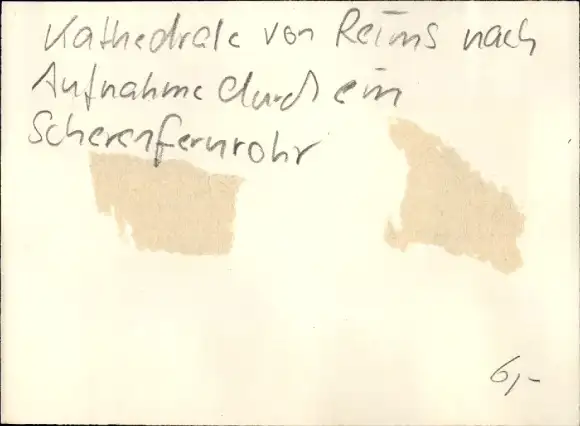 Kathedrale von Reims nach
Aufnahme durch ein
Scherenfernrohr
6,-